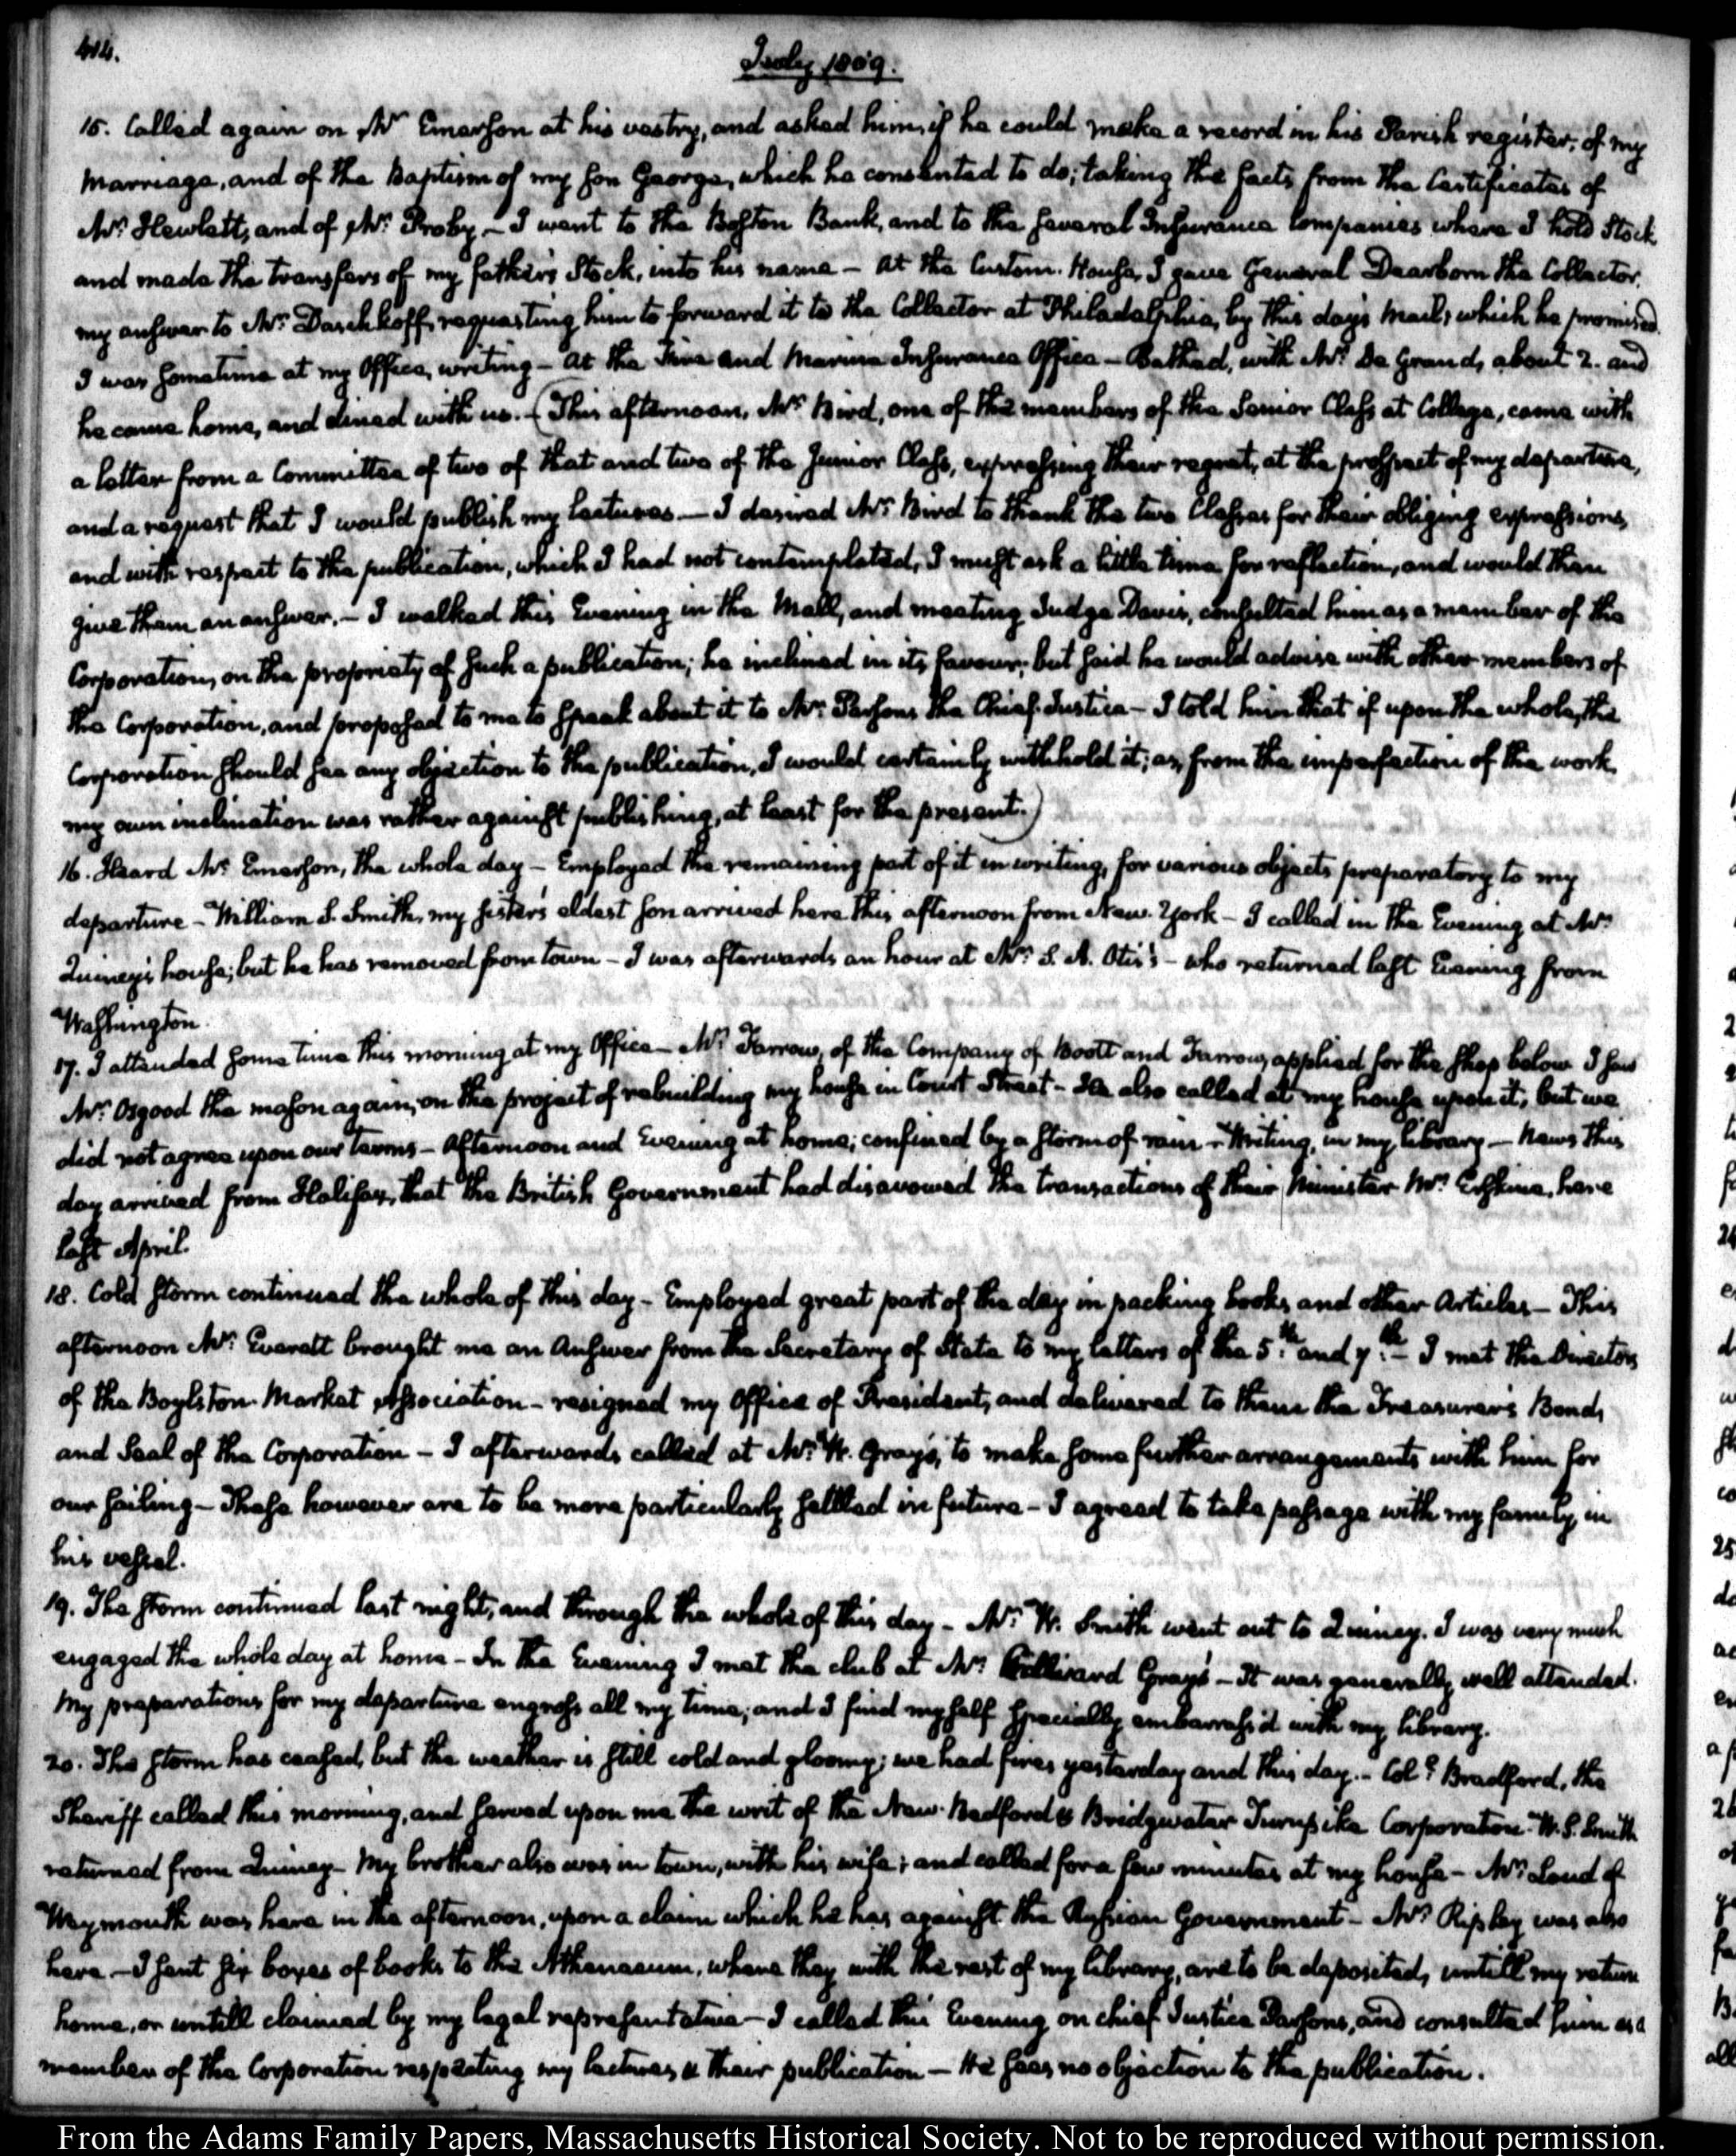 414.
July 1809.
15. Called again on Mr. Emerson at his vestry, and asked him, if he could make a record in his Parish register, of my
marriage, and of the Baptism of my son George, which he consented to do; taking the facts from the Certificates of
Mr. Hewlett, and of Mr. Proby. — I went to the Boston Bank, and to the several Insurance Companies where I hold Stock
and made the transfers of my father's Stock, into his name — At the Custom-House, I gave General Dearborn the Collector,
my answer to Mr. Daschkoff, requesting him to forward it to the Collector at Philadelphia, by this day's mail; which he promised.
I was sometime at my Office, writing — At the Fire and Marine Insurance Office — Bathed, with Mr. De Grand, about 2. and
he came home, and dined with us. — (This afternoon, Mr. Bird, one of the members of the Senior Class at College, came with
a letter from a Committee of two of that and two of the Junior Class, expressing their regret, at the prospect of my departure,
and a request that I would publish my lectures. — I desired Mr. Bird to thank the two Classes for their obliging expressions,
and with respect to the publication, which I had not contemplated, I must ask a little time for reflection, and would then
give them an answer. — I walked this Evening in the Mall, and meeting Judge Davis, consulted him as a member of the
Corporation, on the propriety of such a publication; he inclined in its favour; but said he would advise with other members of
the Corporation, and proposed to me to speak about it to Mr. Parsons the Chief Justice — I told him that if upon the whole, the
Corporation should see any objection to the publication, I would certainly withhold it; as, from the imperfection of the work,
my own inclination was rather against publishing, at least for the present.)
16. Heard Mr. Emerson, the whole day — Employed the remaining part of it in writing, for various objects preparatory to my
departure — William S. Smith, my sister's eldest son arrived here this afternoon from New-York — I called in the Evening at Mr.
Quincy's house; but he has removed from town — I was afterwards an hour at Mr. S. A. Otis's — who returned last Evening from
Washington.
17. I attended some time this morning at my Office — Mr. Farrow, of the Company of Boott and Farrow, applied for the shop below I saw
Mr. Osgood the mason again, on the project of rebuilding my house in Court Street — He also called at my house upon it; but we
did not agree upon our terms — Afternoon and Evening at home; confined by a storm of rain — Writing, in my library — News this
day arrived from Halifax, that the British Government had disavowed the transactions of their Minister Mr. Erskine, here
last April.
18. Cold storm continued the whole of this day — Employed great part of the day in packing books and other Articles — This
afternoon Mr. Everett brought me an Answer from the Secretary of State to my letters of the 5.th and 7.th — I met the Directors
of the Boylston Market Association — resigned my Office of President, and delivered to them the Treasurer's Bond,
and Seal of the Corporation — I afterwards called at Mr. W. Gray's, to make some further arrangements with him for
our sailing — These however are to be more particularly settled in future — I agreed to take passage with my family, in
his vessel.
19. The storm continued last night, and through the whole of this day — Mr. W. Smith went out to Quincy. I was very much
engaged the whole day at home — In the Evening I met the club at Mr. Gray's — It was generally well attended.
My preparations for my departure engross all my time; and I find myself specially embarrass'd with my library.
20. The storm has ceased, but the weather is still cold and gloomy; we had fires yesterday and this day. — Col.l Bradford, the
Sheriff called this morning, and served upon me the writ of the New-Bedford & Bridgwater Turnpike Corporation — W. S. Smith
returned from Quincy — My brother also was in town, with his wife; and called for a few minutes at my house — Mr. Loud of
Weymouth was here in the afternoon, upon a claim which he has against the Russian Government — Mr. Ripley was also
here. — I sent six boxes of books to the Athenaeum, where they with the rest of my library, are to be deposited, untill my return
home, or untill claimed by my legal representative — I called this Evening on chief Justice Parsons, and consulted him as a
member of the Corporation respecting my lectures & their publication — He sees no objection to the publication.
From the Adams Family Papers, Massachusetts Historical Society. Not to be reproduced without permission.